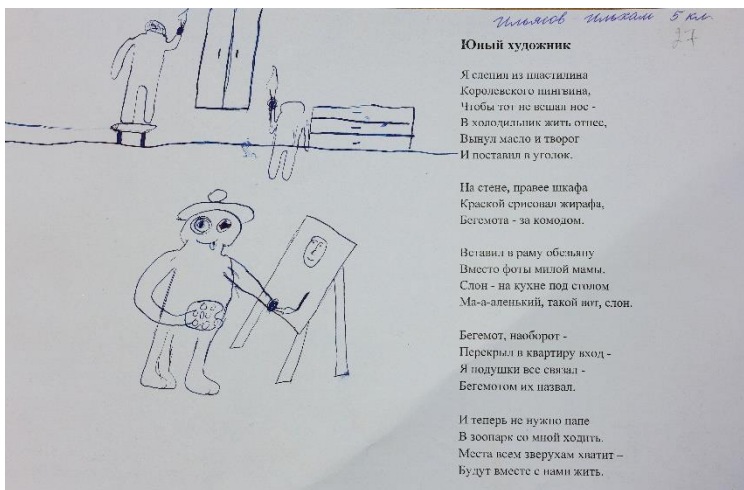 Ильясов Ильхам 5 кл.
27
Юный художник
Я слепил из пластилина
Королевского пингвина,
Чтобы тот не вешал нос -
В холодильник жить отнес,
Вынул масло и творог
И поставил в уголок.
На стене, правее шкафа
Краской срисовал жирафа,
Бегемота - за комодом.
Вставил в раму обезьяну
Вместо фоты милой мамы.
Слон - на кухне под столом
Ма-а-аленький, такой вот, слон.
Бегемот, наоборот -
Перекрыл в квартиру вход -
Я подушки все связал -
Бегемотом их назвал.
И теперь не нужно папе
В зоопарк со мной ходить.
Места всем зверухам хватит –
Будут вместе с нами жить.